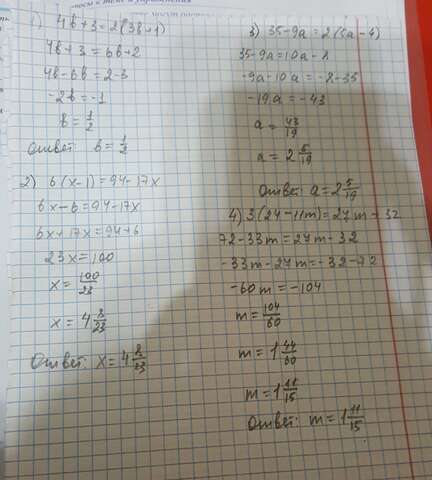 1) 4b+3=2(3b+1)
4b+3=6b+2
4b-6b=2-3
-2b=-1
b=1/2
Ответ: b=1/2
2) 6(x-1)=94-17x
6x-6=94-17x
6x+17x=94+6
23x=100
x=100/23
x=4 8/23
Ответ: x=4 8/23
3) 35-9a=2(5a-4)
35-9a=10a-8
-9a-10a=-8-35
-19a=-43
a=43/19
a=2 5/19
Ответ: a=2 5/19
4) 3(24-11m)=27m-32
72-33m=27m-32
-33m-27m=-32-72
-60m=-104
m=104/60
m=1 44/60
m=1 11/15
Ответ: m=1 11/15